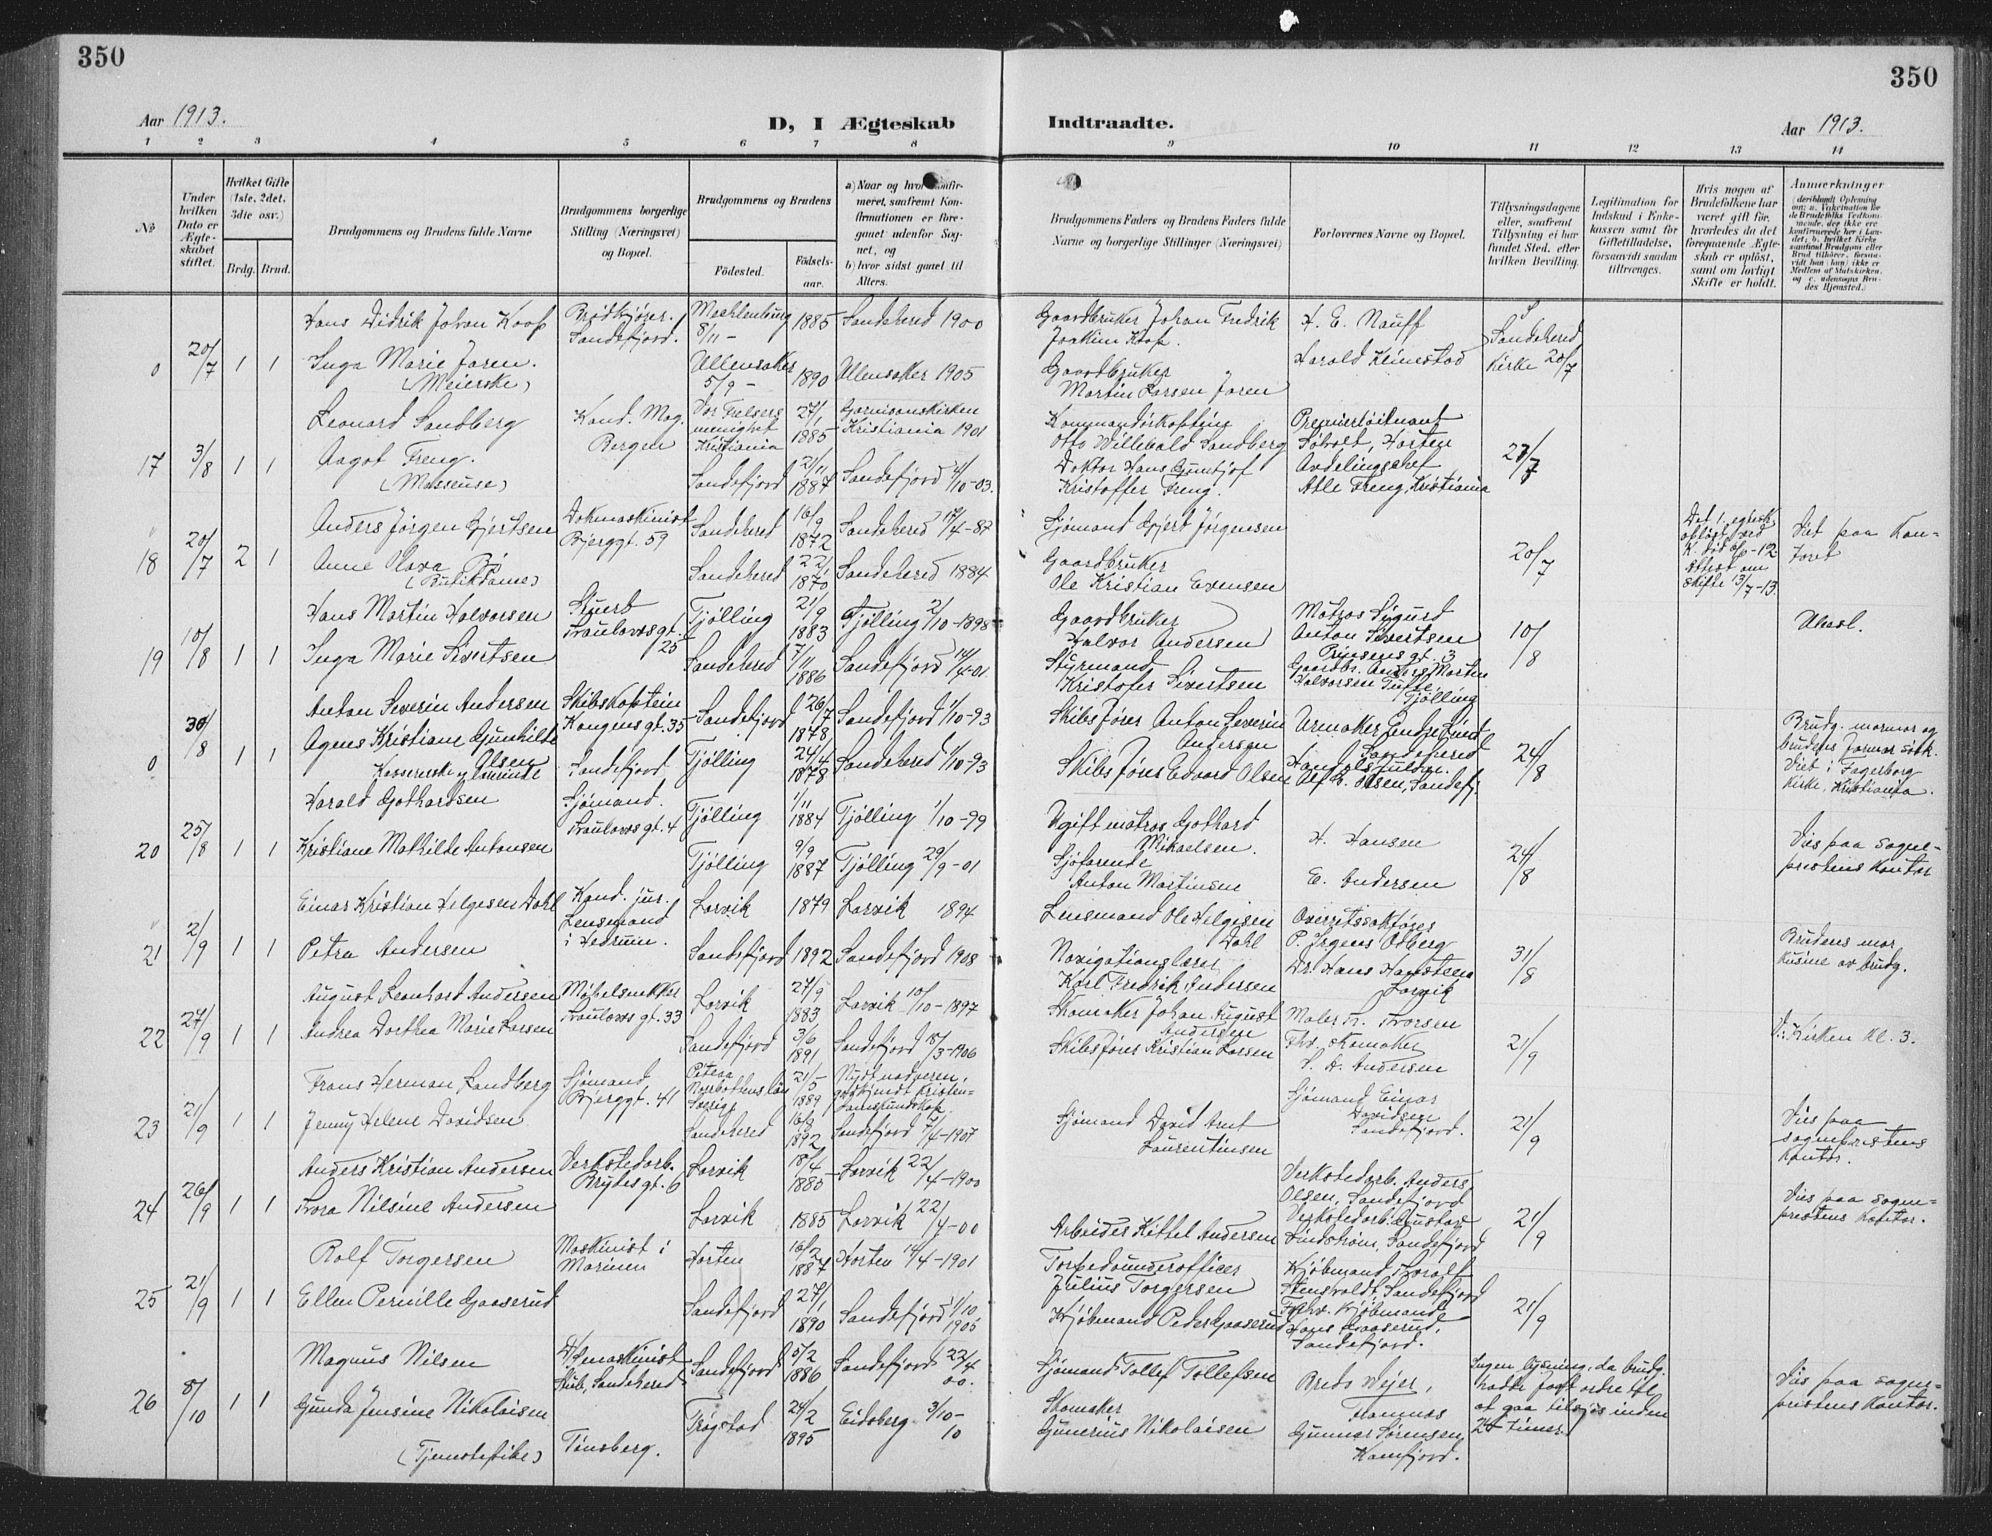 350
350
Aar 1913.
D, I Ægteskab
Indtraadte.
Aar 1913.
1 2 3 4 5 6 7 8
9 10 11 12 13 14
No
Under hvilken Dato er Ægteskabet stiftet.
Hvilket Gifte (1ste, 2det, 3die osv.)
Brdg. Brud.
Brudgommens og Brudens fulde Navne
Brudgommens borgerlige Stilling (Næringsvei) og Bopæl.
Brudgommens og Brudens
Fødested.
Fødselsaar.
a) Naar og hvor konfirmeret, saafremt Konfirmationen er foregaaet udenfor Sognet, og
b) hvor sidst gaaet til Alters.
Brudgommens Faders og Brudens Faders fulde Navne og borgerlige Stillinger (Næringsvei)
Forlovernes Navne og Bopæl.
Tillysningsdagene eller, saafremt Tillysning ei har fundet Sted, efter hvilken Bevilling.
Legitimation for Indskud i Enkekassen samt for Giftetilladelse, forsaavidt saadan tiltrænges.
Hvis nogen af Brudefolkene har været gift før, hvorledes da det foregaaende Ægteskab er opløst, samt om lovligt Skifte er holdt.
Anmærkninger
0 20/7 1 1
Hans Didrik Johan Koop
Brødkjører. Sandefjord.
Mechlenburg 8/11 - 1885
Sandehered 1900
Gaardbruker Johan Fredrik Joakim Koop.
H. E. Nauff
Harald Keimestad
Sandehered Kirke 20/7
Inga Marie Jaren. (Meierske)
Ullensaker 5/9 - 1890
Ullensaker 1905
Gaardbruker Martin Larsen Jaren
17 3/8 1 1
Leonard Sandberg
Kand. Mag. Bergen
Vor Frelsers menighet Kristiania
27/1 1885
Garnisonskirken Kristiania 1901
Kommandørkaptein Otto Willebald Sandberg
Premierløitnant Sølvolt, Horten
27/7
Aagot Freng. (Masseuse)
Sandefjord 21/11 1887
Sandefjord 4/10-03.
Doktor Hans Gunerjof Kristoffer Freng.
Avdelingschef Atle Freng, Kristiania
18 20/7 2 1
Anders Jørgen Gjertsen
Dokmaskinist Bjerggt. 59
Sandehered 16/9 1872
Sandehered 17/4-87
Sjømand Gjert Jørgensen
20/7
Det 1. egtesk. opløst ved K. død 6/6-12 Attest om skifte 13/7-13.
Viet paa Kontoret
Anne Olava Bø (Butikdame)
Sandehered 22/1 1870
Sandehered 1884
Gaardbruker Ole Kristian Evensen
19 10/8 1 1
Hans Martin Halvorsen
Stuert Traulovsgt. 25
Tjølling 21/9 1883
Tjølling 2/10-1898
Gaardbruker Halvor Andersen
Matros Sigurd Anton Sivertsen Prinsensgt. 3
10/8
Ubesl.
Inga Marie Sivertsen
Sandehered 7/11 1886
Sandefjord 14/4-01
Styrmand Kristofer Sivertsen
Gaardbr. Anders Morten Halvorsen Tufte, Tjølling
0 30/8 1 1
Anton Severin Andersen
Skibskaptein Kongensgt. 35
Sandefjord 26/7 1878
Sandefjord 1/10-93
Skibsfører Anton Severin Andersen
24/8
Agnes Kristiane Gunhilde Olsen
Sandefjord
Tjølling 24/4 1878
Sandehered 1/10-93
Skibsfører Edvard Olsen
Alf E. Olsen, Sandefj.
Viet i Fagerborg Kirke, Kristiania.
20 25/8 1 1
Harald Gothardsen
Sjømand. Traulovsgt. 4
Tjølling 1/11 1884
Tjølling 1/10-99
Ugift matros Gothard Mikaelsen.
H. Hansen
24/8
Viet paa sogneprestens Kontor
Kristiane Mathilde Antonsen
Tjølling 9/9 1887
Tjølling 29/9-01
Sjøfarende Anton Martinsen
E. Andersen
21 2/9 1 1
Einar Kristian Helgesen Dahl
Kand. jur. Lensmand i Hedrum.
Larvik 1879
Larvik 1894
Lensmand Ole Helgesen Dahl
Overretssakfører P. Irgens Odberg
31/8
Brudens mor kusine av brudg.
Petra Andersen
Sandefjord 1892
Sandefjord 1908
Navigationslærer Karl Fredrik Andersen
Dr. Hans Hansteen Larvik
22 27/9 1 1
August Leonhard Andersen
Møbelsnekker Traulovsgt. 33
Larvik 27/9 1883
Larvik 10/10-1897
Skomaker Johan August Andersen
21/9
I Kirken Kl. 3.
Andrea Dorthea Marie Larsen
Sandefjord 3/6 1891
Sandefjord 18/3-1906
Skibsfører Kristian Larsen
S. A. Andersen
23 21/9 1 1
Frans Herman Landberg
Sjømand Bjerggt. 41
Pitea Norrbottens län Sverige
21/5 1889
Sjømand Einar Davidsen Sandefjord.
21/9
Viet paa sogneprestens Kontor.
Jenny Helene Davidsen
Sandehered 16/9 1892
Sandefjord 7/4-1907
Sjømand David Arnt Laurentinsen
24 26/9 1 1
Anders Kristian Andersen
Verkstedarb. Brydesgt. 6
Larvik 18/4 1885
Larvik 22/4-1900
Verkstedarb. Anders Olsen, Sandefjord
21/9
Viet paa sogneprestens Kontor.
Thora Nilsine Andersen
Larvik 1885
Larvik 22/4-00
Arbeider Kittel Andersen
Verkstedarb. Gustav Lindstrøm, Sandefjord
25 21/9 1 1
Rolf Torgersen
Maskinist i Marinen
Horten 16/2 1887
Horten 14/4-1901
Torpedounderofficer Julius Torgersen
Kjøbmand Harald Stensvoldt, Sandefjord
21/9
Ellen Pernille Gaaserud
Sandefjord 27/1 1890
Sandefjord 1/10 1905
Kjøbmand Peder Gaaserud
Fhv. Kjøbmand Hans Gaaserud, Sandefjord.
26 8/10 1 1
Magnus Nilsen
Sandefjord 5/2 1886
Sandefjord 22/4 00.
Sjømand Tollef Tollefsen
Bredo Weier, Framnes
Ingen lysning, da brudg. hadde faat ordre til at gaa tilsjøs inden 24 timer.
Viet paa sogneprestens Kontor.
Gunda Jensine Nikolaisen (Tjenestepike)
Tønsberg.
Trøgstad 24/2 1895
Eidsberg 3/10-10
Skomaker Gunerius Nikolaisen
Gunnar Sørensen Kamfjord.